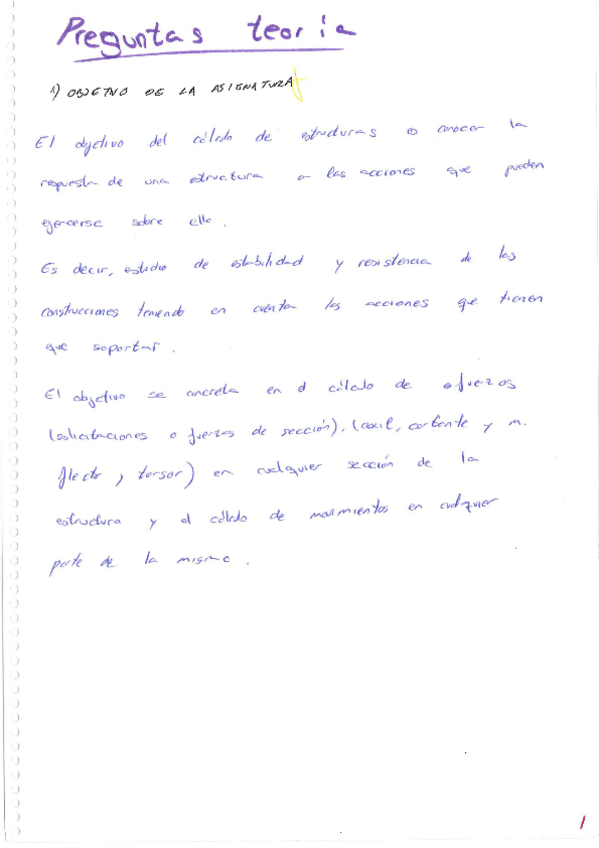 Preguntas teoria
1) OBJETIVO DE LA ASIGNATURA
El objetivo del cálculo de estructuras es conocer la
respuesta de una estructura a las acciones que pueden
ejercerse sobre ella.
Es decir, estudio de estabilidad y resistencia de las
construcciones teniendo en cuenta las acciones que tienen
que soportar.
El objetivo se concreta en el cálculo de esfuerzos
(solicitaciones o fuerzas de sección), (axil, cortante y m.
flector, torsor) en cualquier sección de la
estructura y el cálculo de movimientos en cualquier
parte de la misma.
1